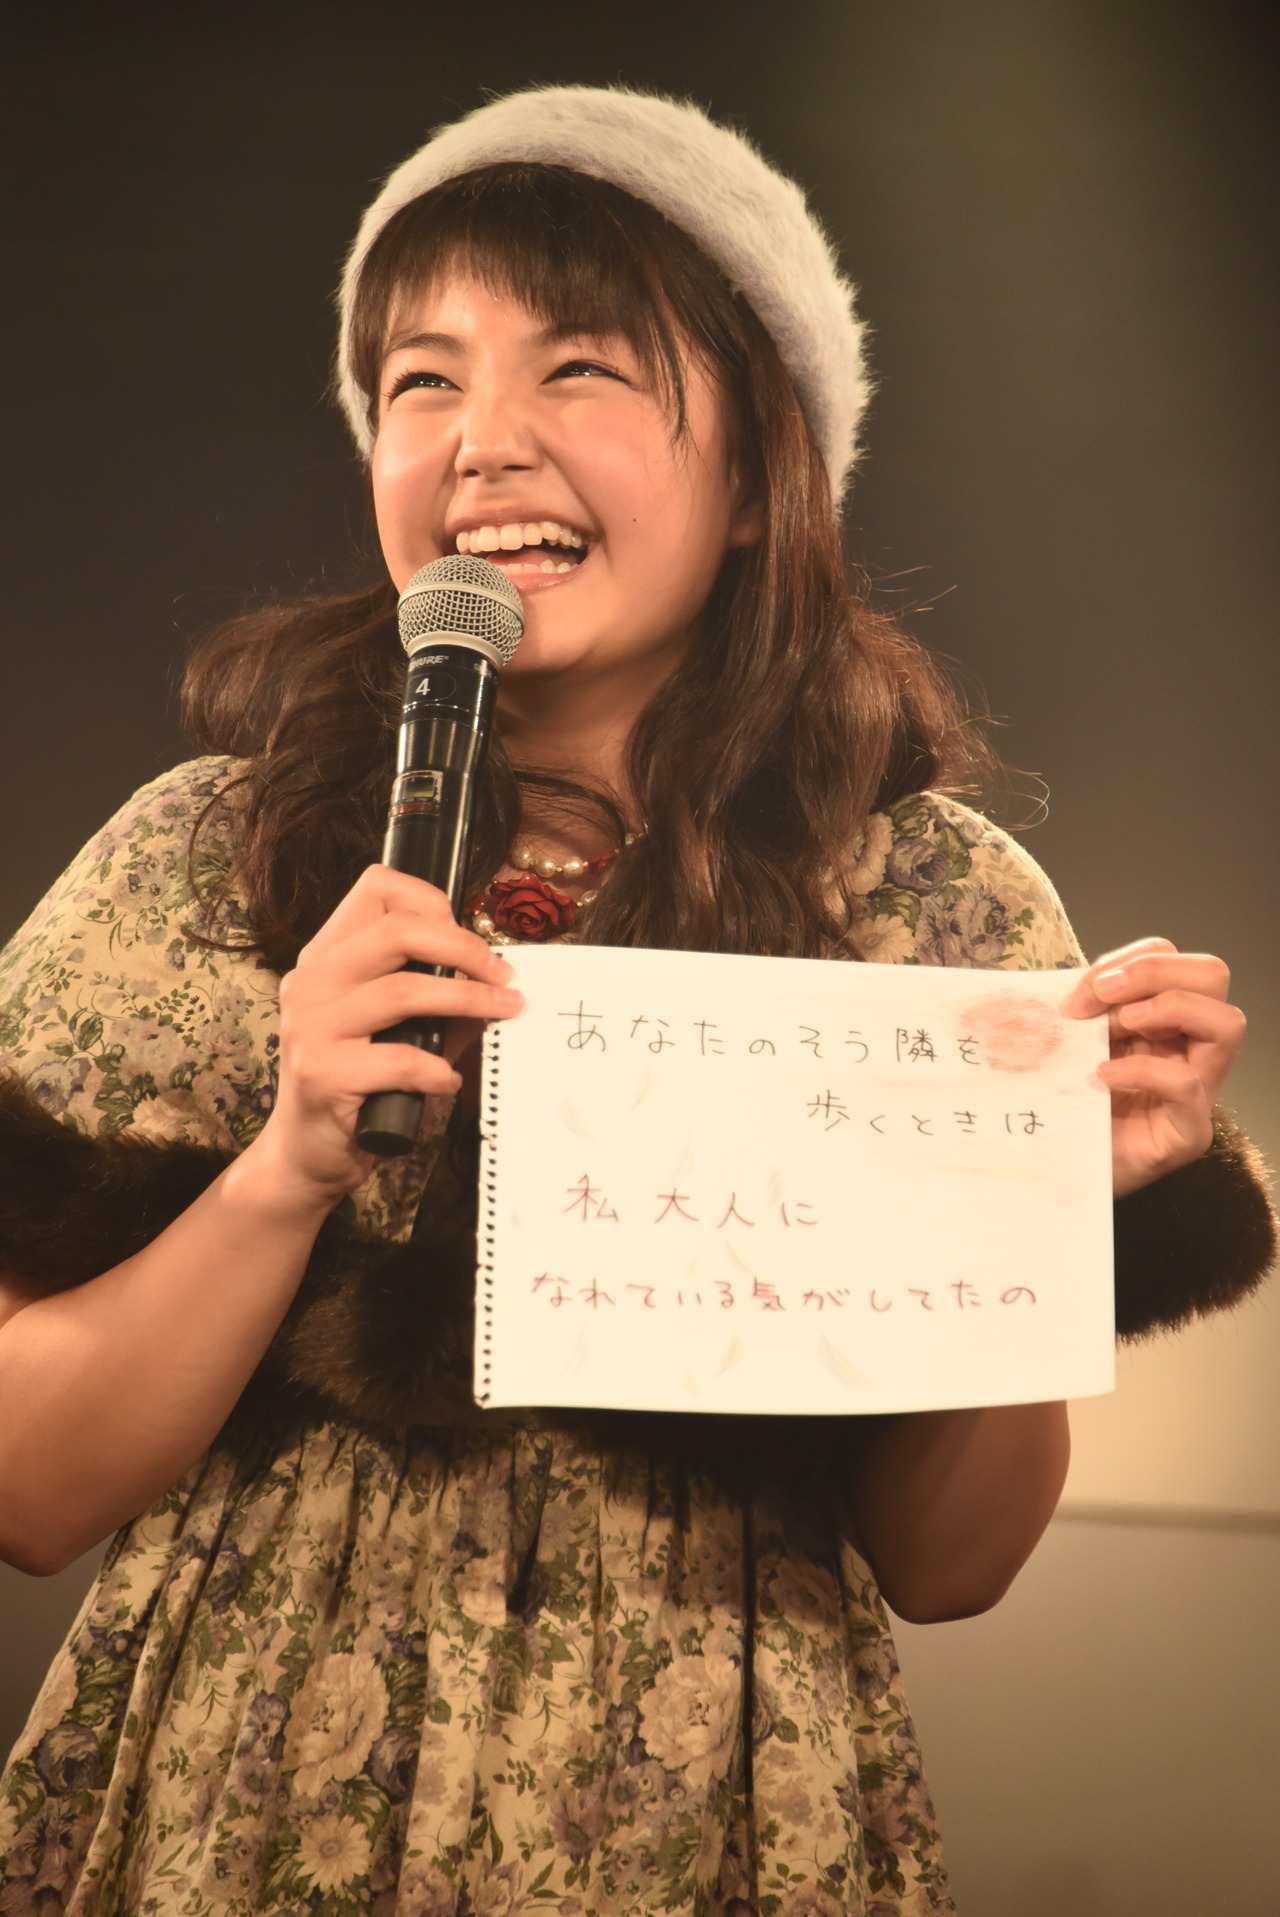 SHURE
4
あなたのそう隣を
歩くときは
私 大人に
なれている気がしてたの